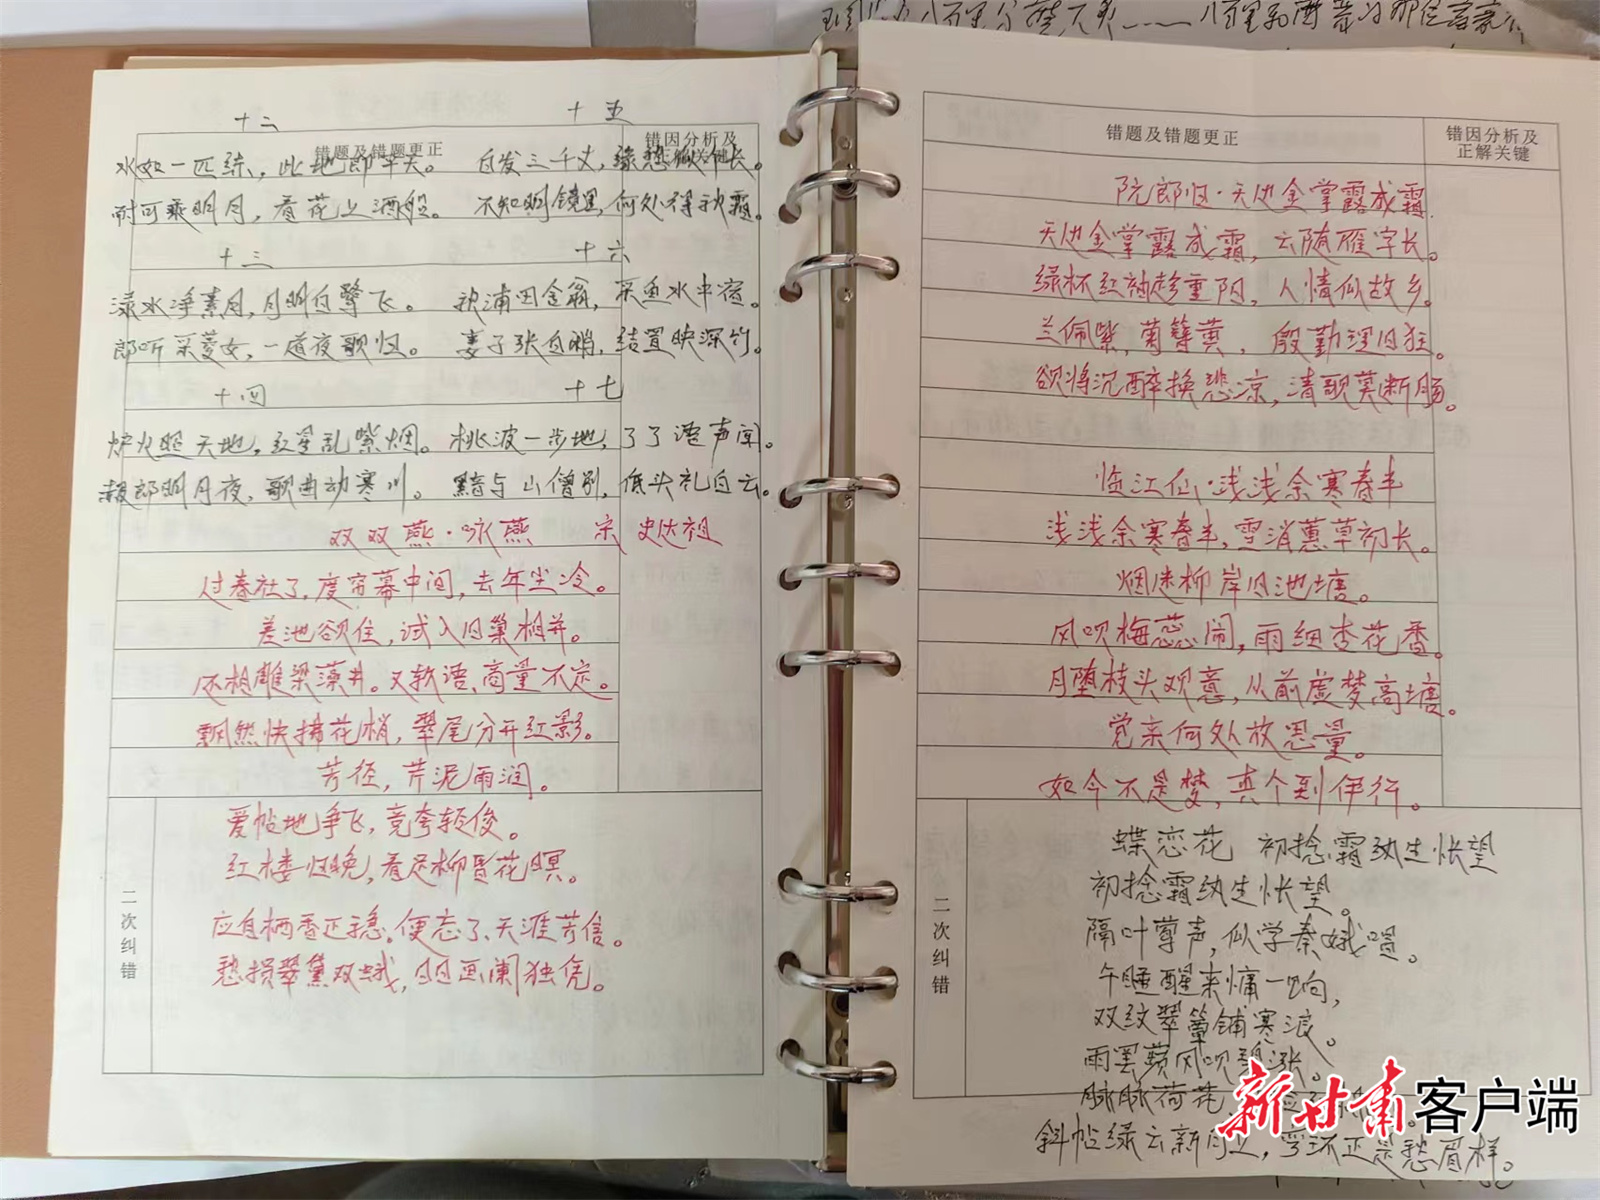 十二 十五
错题及错题更正 错因分析及
正解关键
水如一匹练,此地即平天。 白发三千丈,缘愁似个长。
耐可乘明月,看花上酒船。 不知明镜里,何处得秋霜。
十三 十六
渌水净素月,月明白鹭飞。 秋浦田舍翁,采鱼水中宿。
郎听采菱女,一道夜歌归。 妻子张白鹇,结罝映深竹。
十四 十七
炉火照天地,红星乱紫烟。 桃波一步地,了了语声闻。
赧郎明月夜,歌曲动寒川。 黯与山僧别,低头礼白云。
双双燕·咏燕 宋 史达祖
过春社了,度帘幕中间,去年尘冷。
差池欲住,试入旧巢相并。
还相雕梁藻井。又软语、商量不定。
飘然快拂花梢,翠尾分开红影。
芳径,芹泥雨润。
爱帖地争飞,竞夸轻俊。
红楼归晚,看足柳昏花暝。
应自栖香正稳。便忘了、天涯芳信。
愁损翠黛双蛾,日日画阑独凭。
二次纠错
错题及错题更正 错因分析及
正解关键
阮郎归·天边金掌露成霜
天边金掌露成霜,云随雁字长。
绿杯红袖趁重阳,人情似故乡。
兰佩紫,菊簪黄,殷勤理旧狂。
欲将沉醉换悲凉,清歌莫断肠。
临江仙·浅浅余寒春半
浅浅余寒春半,雪消蕙草初长。
烟迷柳岸旧池塘。
风吹梅蕊闹,雨细杏花香。
月堕枝头欢意,从前虚梦高塘。
觉来何处放思量。
如今不是梦,真个到伊行。
二次纠错
蝶恋花 初捻霜纨生怅望
初捻霜纨生怅望。
隔叶莺声,似学秦娥唱。
午睡醒来慵一晌,
双纹翠簟铺寒浪。
雨罢蘋风吹碧涨。
脉脉荷花
斜帖绿云新月上,弯环正是愁眉样。
新甘肃客户端